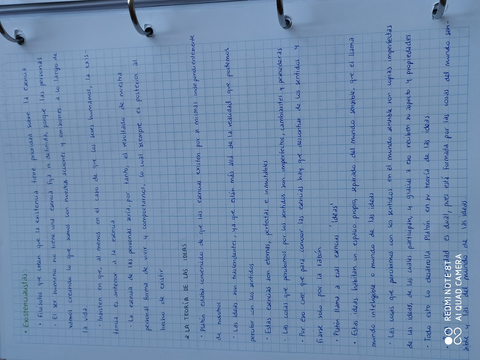 · Existencialistas
· Ellos/ellas que creen que la existencia tiene prioridad sobre la esencia
· El ser humano no tiene una esencia fija o definida, porque las personas
vamos creando lo que somos con nuestras acciones y decisiones a lo largo de
la vida.
Insisten en que, al menos en el caso de los seres humanos, la exis-
tencia es anterior a la esencia
La esencia de las personas sería, por tanto, el resultado de nuestra
personal forma de vivir y comportarnos, lo cual siempre es posterior al
hecho de existir
2 LA TEORÍA DE LAS IDEAS
· Platón estaba convencido de que las esencias existen por sí mismas independientemente
de nosotros
· Las ideas son trascendentes, ya que están más allá de la realidad que podemos
percibir con los sentidos
· Estas esencias son eternas, perfectas e inmutables
· Las cosas que percibimos por los sentidos son imperfectas, cambiantes y perecederas
· Por eso cree que para conocer las esencias hay que desconfiar de los sentidos y
fiarse solo por la razón
· Platón llama a esas esencias "ideas"
· Estas ideas habitan un espacio propio, separado del mundo sensible, que él llama
mundo inteligible o mundo de las ideas
· Las cosas que percibimos con los sentidos en el mundo sensible son copias imperfectas
de las ideas, de las cuales participan, y gracias a eso reciben su aspecto y propiedades
· Todo esto lo desarrolla Platón en su teoría de las ideas
es dual, pues está formada por las cosas del mundo sen-
sible y las del mundo de las ideas
REDMI NOTE 8T
AI QUAD CAMERA